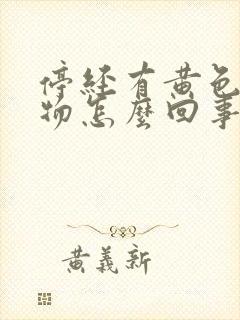 停經有黃色
物怎麼回事
黃義新